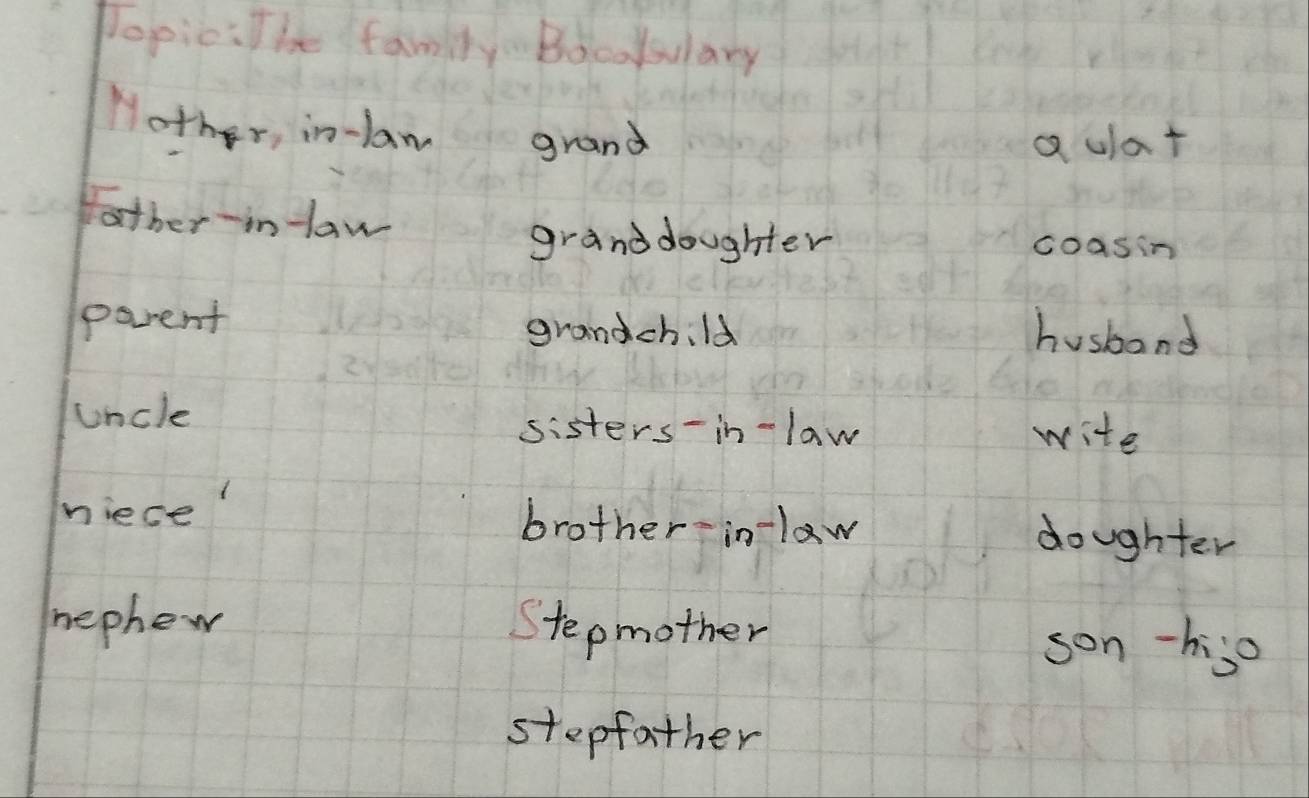 Topic: The family Bocabulary
Mother, in-law grand aulat
Father-in-law granddoughter coasin
parent grandchild husband
uncle sisters-in-law wite
niece' brother-in-law doughter
nephew Stepmother son -hijo
stepfather